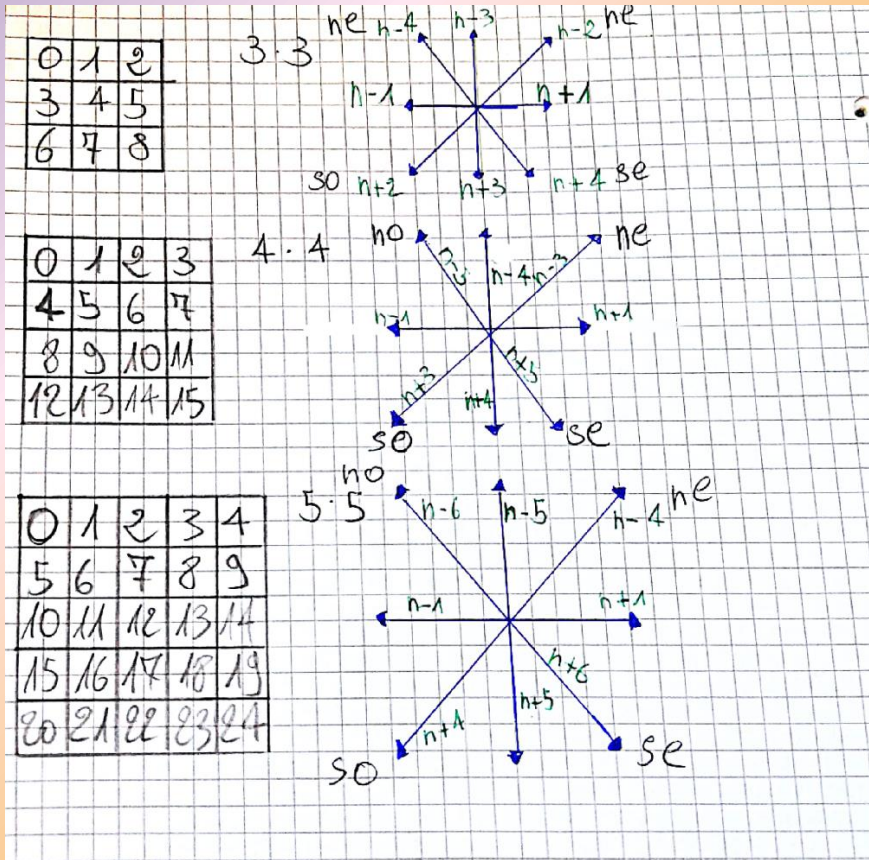 0 1 2
3 4 5
6 7 8
3·3
ne n-4 n-3 n-2 ne
n-1 n+1
so n+2 n+3 n+4 se
0 1 2 3
4 5 6 7
8 9 10 11
12 13 14 15
4·4
no ne
n-4 n-3
n-1 n+1
n+3 n+4
so se
0 1 2 3 4
5 6 7 8 9
10 11 12 13 14
15 16 17 18 19
20 21 22 23 24
5·5
no n-6 n-5 n-4 ne
n-1 n+1
n+4 n+5 n+6
so se